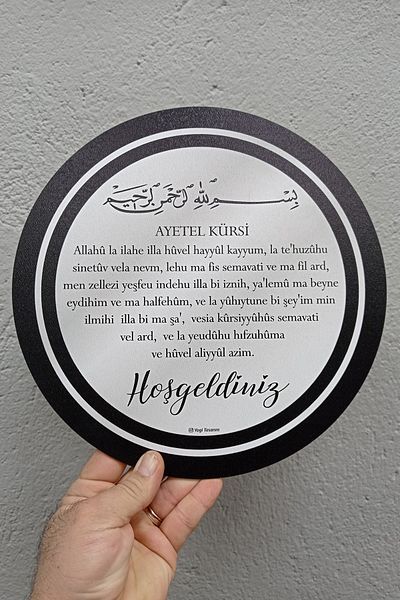 بِسْمِ اللهِ الرَّحْمٰنِ الرَّحِيمِ
AYETEL KÜRSİ
Allahû la ilahe illa hûvel hayyûl kayyum, la te'huzûhu
sinetûv vela nevm, lehu ma fis semavati ve ma fil ard,
men zellezi yeşfeu indehu illa bi iznih, ya'lemû ma beyne
eydihim ve ma halfehûm, ve la yûhıytune bi şey'im min
ilmihi illa bi ma şa', vesia kûrsiyyûhûs semavati
vel ard, ve la yeudûhu hıfzuhûma
ve hûvel aliyyûl azim.
Hoşgeldiniz
Yagi Tasarım